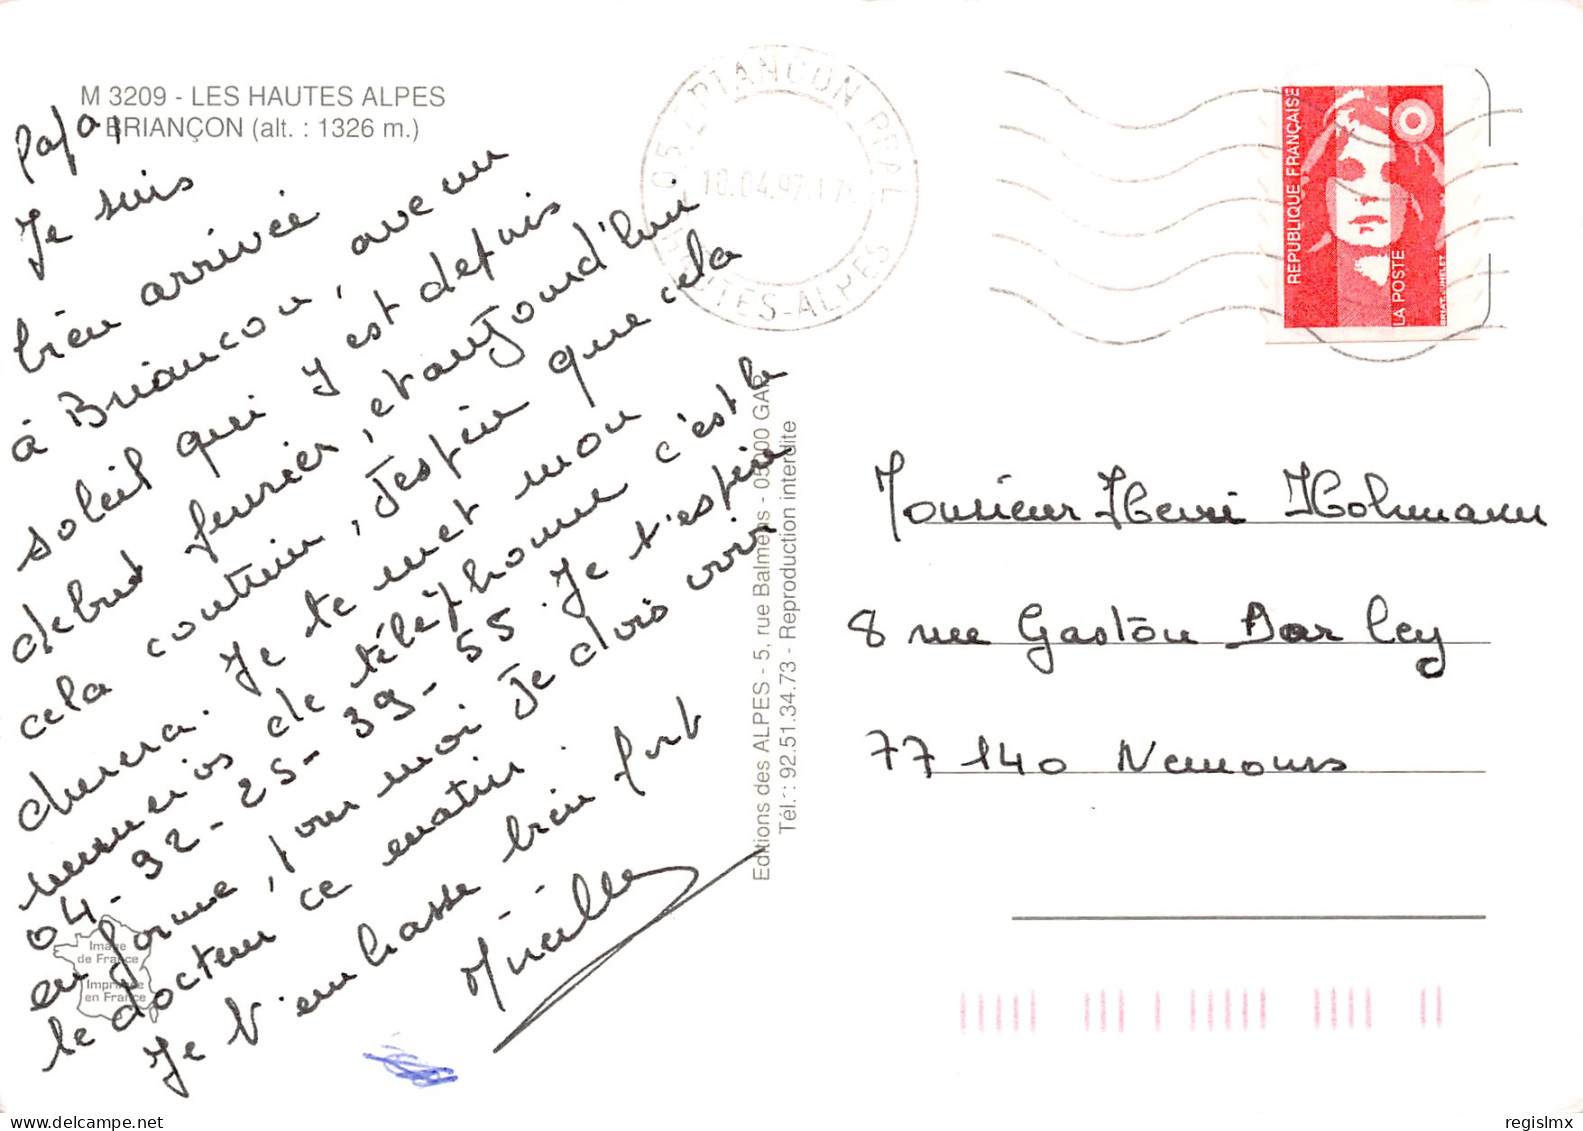 M 3209 - LES HAUTES ALPES
BRIANÇON (alt. : 1326 m.)
Papa,
Je suis
bien arrivée
à Briancon, avec un
soleil qui y est depuis
debut fevrier, et aujourd'hui
cela continu, J'espère que cela
durera. Je te met mon
numeros de téléphone c'est le
04-92-25-39-55. Je t'espère
en forme, pour moi Je dois voir
le docteur ce matin.
Je t'embrasse bien fort
Mireille
Image
de France
Imprimée
en France
Editions des ALPES - 5, rue Balmens - 05000 GAP
Tél. : 92.51.34.73 - Reproduction interdite
05 BRIANCON PPAL
10.04.97
HAUTES-ALPES
REPUBLIQUE FRANÇAISE
LA POSTE
Monsieur Henri Holimann
8 rue Gaston Darley
77 140 Nemours
regislmx